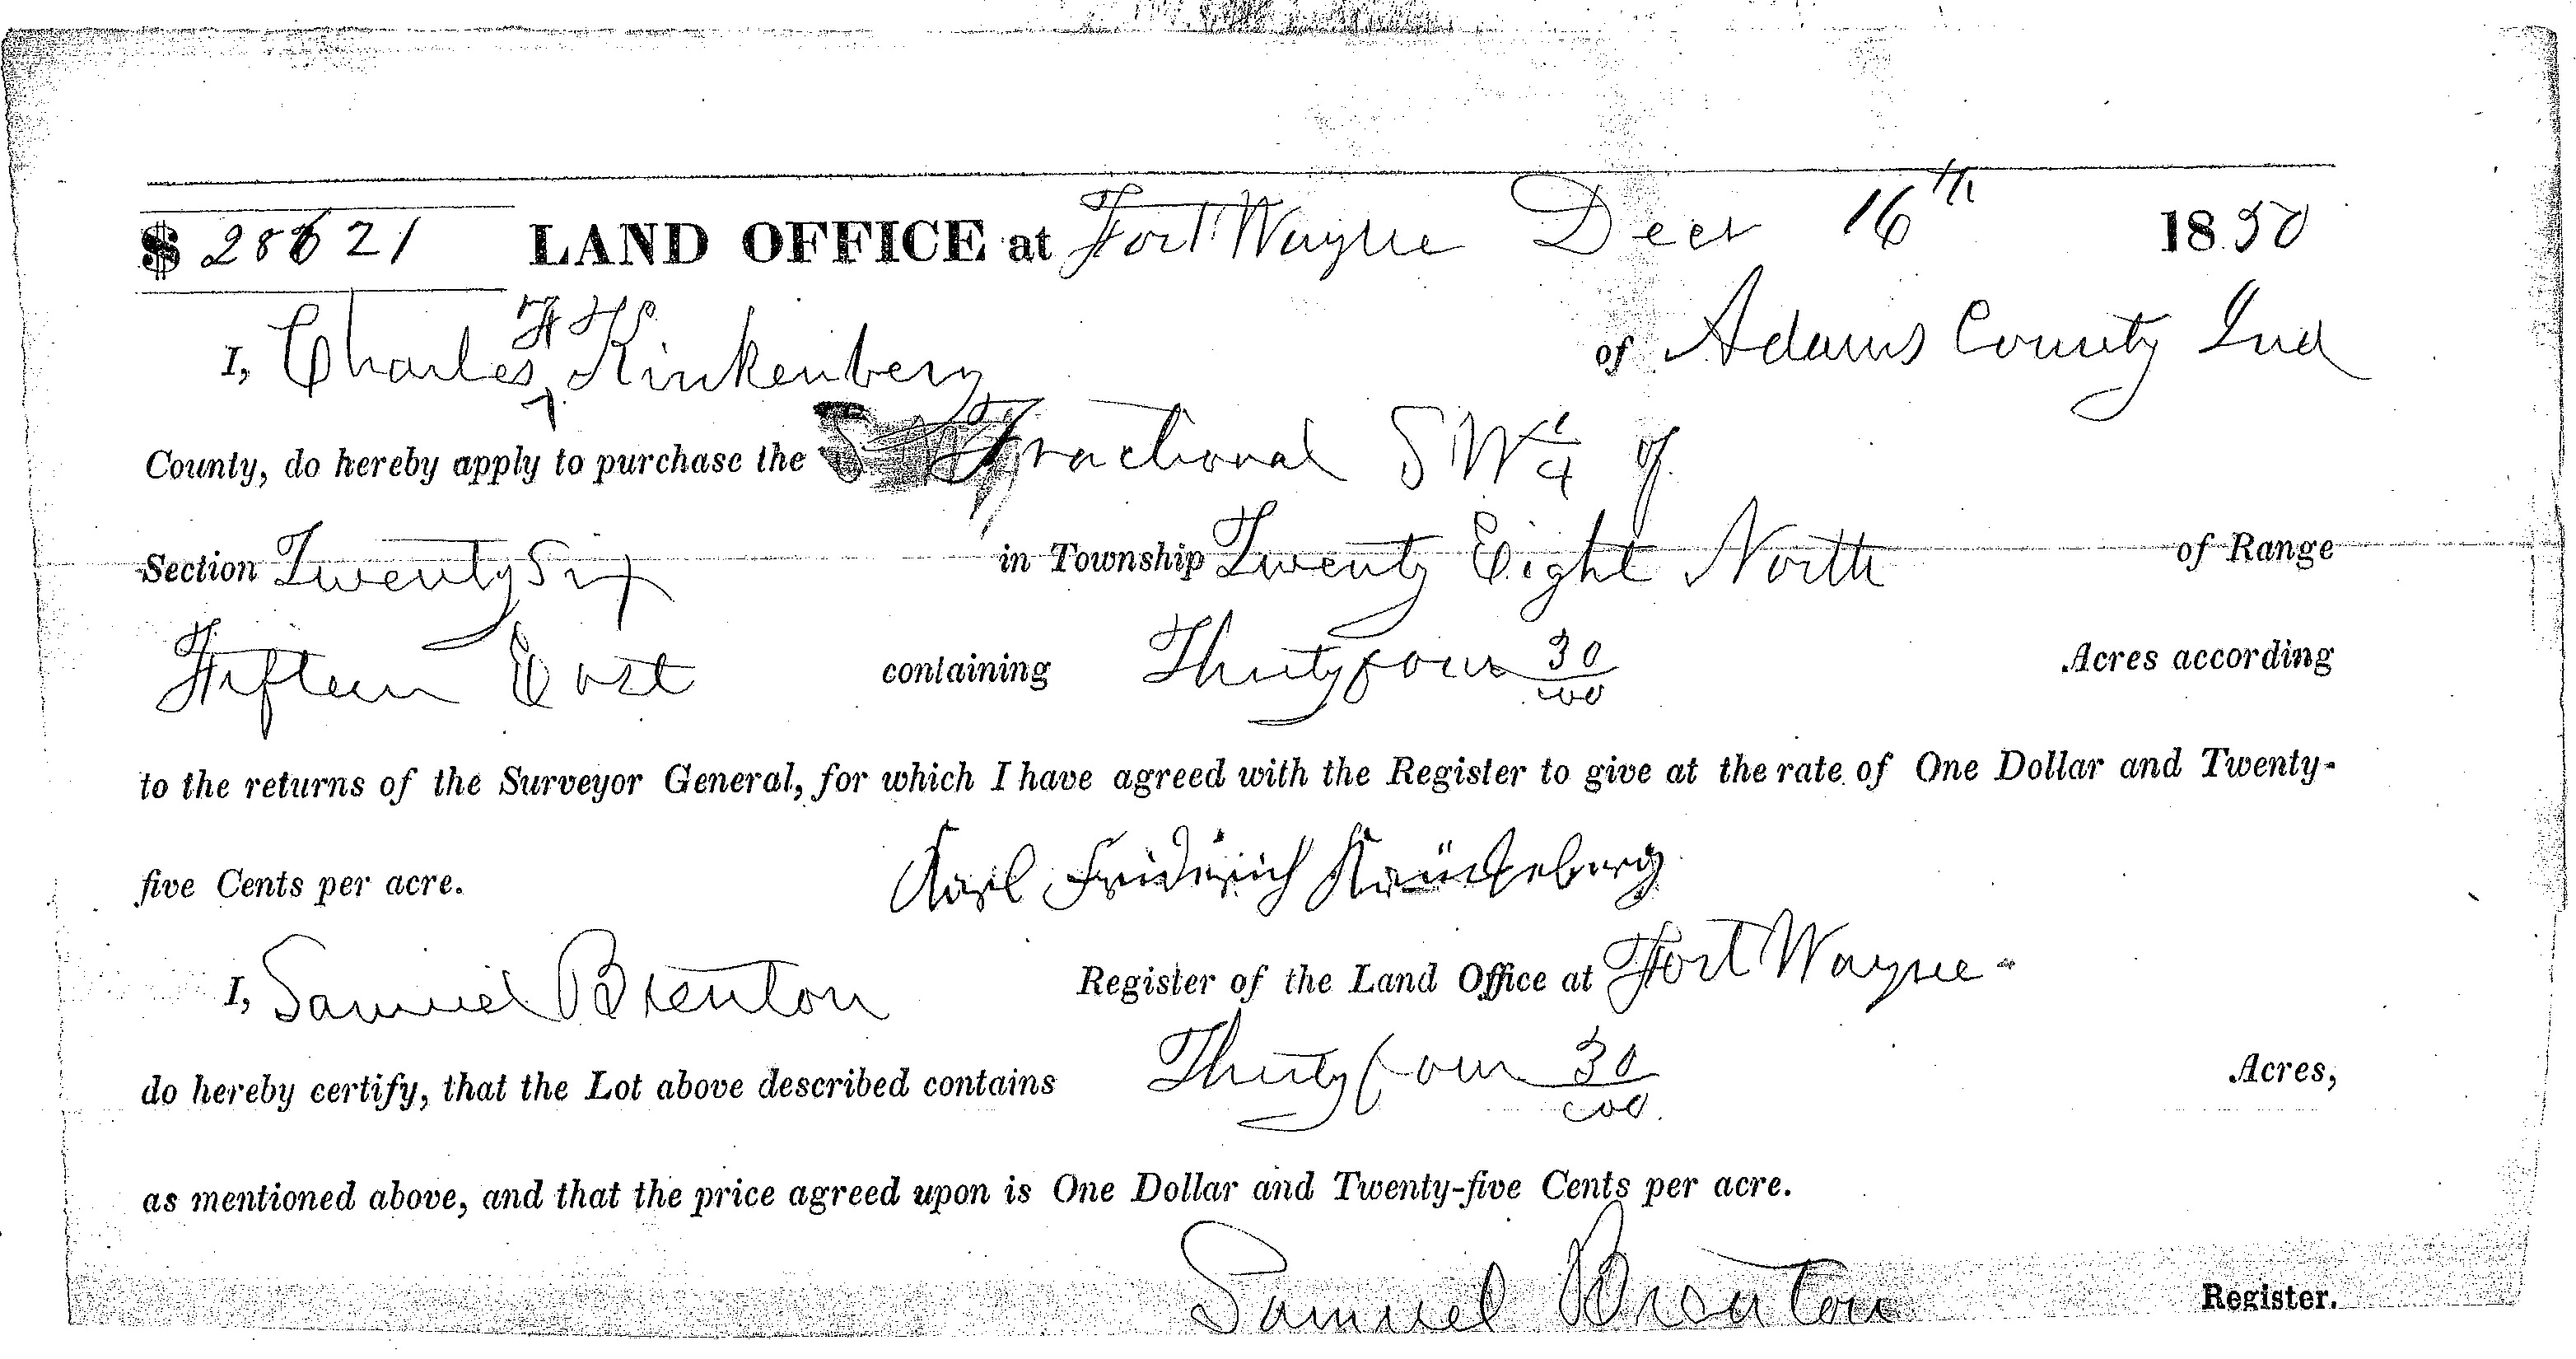 $ 28621 LAND OFFICE at Fort Wayne Decr 16th 1850
I, Charles F Kinkenberg of Adams County Ind
County, do hereby apply to purchase the Fractional SW 1/4 of
Section Twenty Six in Township Twenty Eight North of Range
Fifteen East containing Thirty four 30/100 Acres according
to the returns of the Surveyor General, for which I have agreed with the Register to give at the rate of One Dollar and Twenty-
five Cents per acre. Karl Fridrich Krückeberg
I, Samuel Brenton Register of the Land Office at Fort Wayne
do hereby certify, that the Lot above described contains Thirty four 30/100 Acres,
as mentioned above, and that the price agreed upon is One Dollar and Twenty-five Cents per acre.
Samuel Brenton Register.